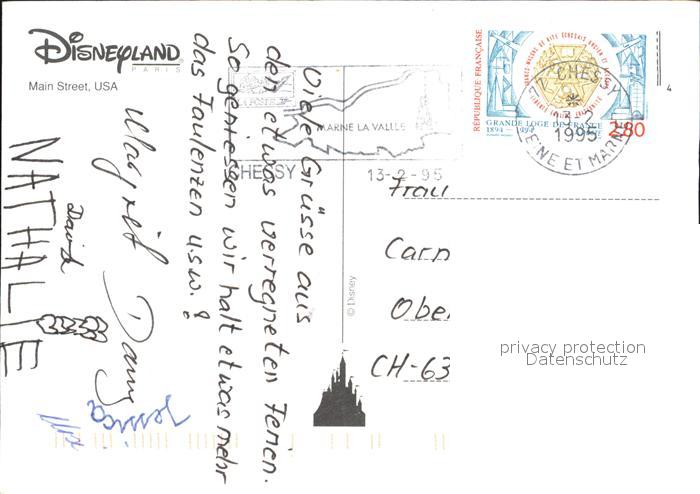 DISNEYLAND
PARIS
Main Street, USA
Viele Grüsse aus
den etwas verregneten Ferien.
So geniessen wir halt etwas mehr
das Faulenzen u.s.w.!
Dany
David
NATHALIE
Jessica
LA POSTE
MARNE LA VALLEE
CHESSY
13-2-95
RÉPUBLIQUE FRANÇAISE
GRANDE LOGE DE FRANCE
1894 - 1994
2,80
77 CHESSY
13-2
1995
SEINE ET MARNE
4
Frau
Carn
Obe
CH-63
© Disney
privacy protection
Datenschutz